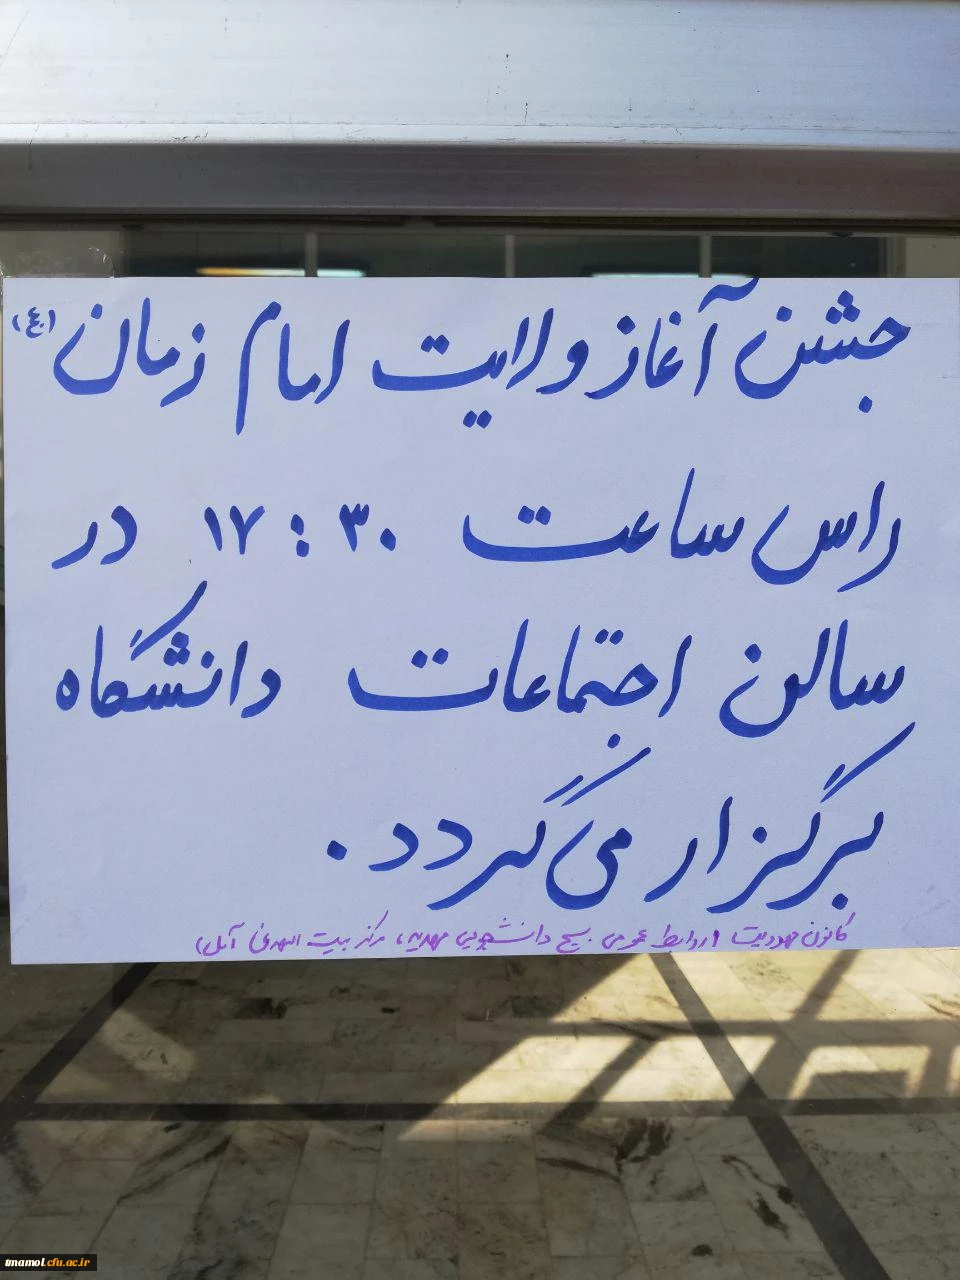 جشن آغاز ولایت امام زمان (عج)
راس ساعت ۱۷:۳۰ در
سالن اجتماعات دانشگاه
برگزار می گردد.
کانون مهدویت (روابط عمومی بسیج دانشجویی مهدیه، مرکز بیت الهدی آمل)
tmamol.cfu.ac.ir